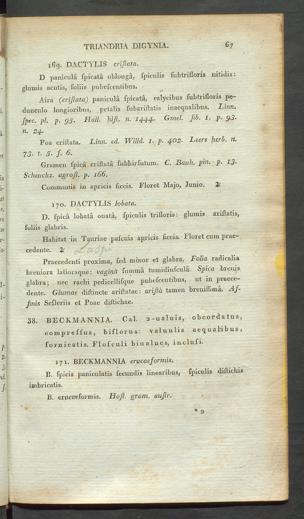 TRIANDRIA DIGYNIA. 67
169. DACTYLIS criſtata.
D paniculâ ſpicatâ oblongâ, ſpiculis ſubtrifloris nitidis:
glumis acutis, foliis pubeſcentibus.
Aira (criſtata) paniculâ ſpicatâ, calycibus ſubtrifloris pe-
dunculo longioribus, petalis ſubariſtatis inaequalibus. Linn.
ſpec. pl. p. 95. Hall. hiſt. n. 1444. Gmel. ſib. 1. p. 93.
n. 24.
Poa criſtata. Linn. ed. Willd. 1. p. 402. Leers herb. n.
73. t. 5. f. 6.
Gramen ſpicâ criſtatâ ſubhirſutum. C. Bauh. pin. p. 13.
Scheuchz. agroſt. p. 166.
Communis in apricis ſiccis. Floret Majo, Junio. ♃
170. DACTYLIS lobata.
D. ſpicâ lobatâ ouatâ, ſpiculis trifloris: glumis ariſtatis,
foliis glabris.
Habitat in Tauriae paſcuis apricis ſiccis. Floret cum prae-
cedente. ♃
Praecedenti proxima, ſed minor et glabra. Folia radicalia
breuiora latioraque: vagina ſummâ tumidiuſculâ. Spica
glabra; nec rachi pedicelliſque pubeſcentibus, ut in praece-
dente. Glumae diſtincte ariſtatae: ariſtâ tamen breuiſſimâ. Af-
finis Sesleriis et Poae diſtichae.
38. BECKMANNIA. Cal. 2-ualuis, obcordatus,
compreſſus, biflorus: valuulis aequalibus,
fornicatis. Floſculi biualues, incluſi.
171. BECKMANNIA erucaeformis.
B. ſpicis paniculatis ſecundis linearibus, ſpiculis diſtichis
imbricatis.
B. erucaeformis. Hoſt. gram. auſtr.
* 2